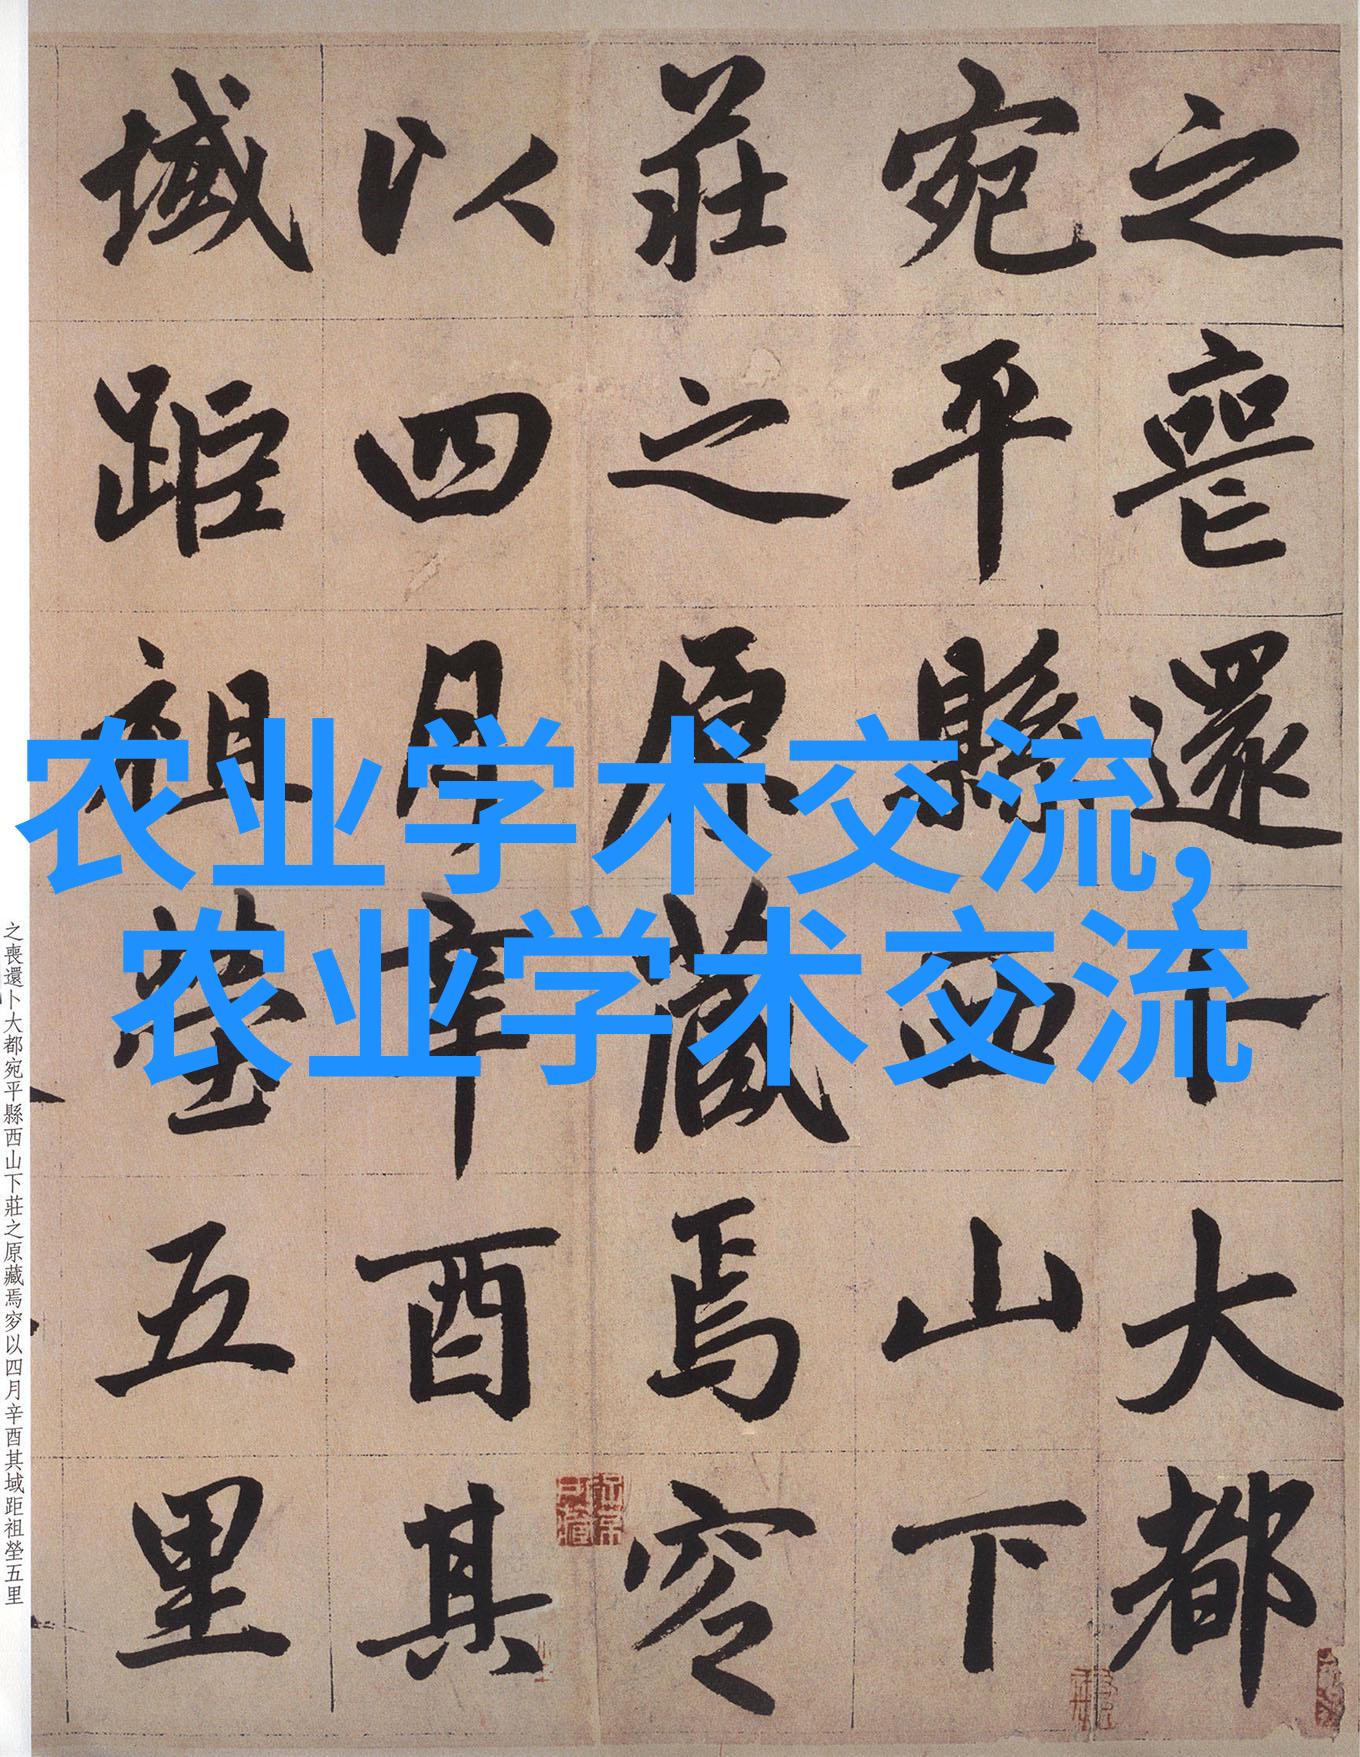 之喪還卜大都
宛平縣西山下
莊之原藏焉穸
以四月辛酉其
域距祖塋五里
农业学术交流,
农业学术交流
之喪還卜大都宛平縣西山下莊之原藏焉穸以四月辛酉其域距祖塋五里